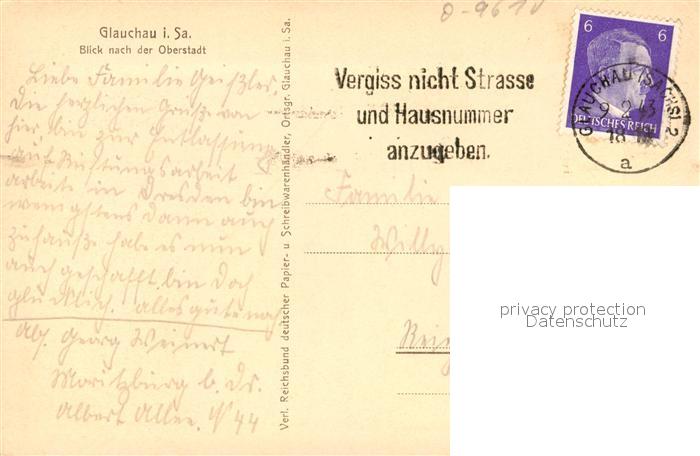 Glauchau i. Sa.
Blick nach der Oberstadt
D-9610
Liebe Familie Geißler,
Die herzlichen Grüße von
hier, bin zur Entlassung
auf Rüstungsarbeit
arbeite in Dresden bin
wenigstens dann auch
zuhauße habe es nun
auch geschafft bin doch
glücklich. alles gute noch
Abs. Georg Weinert
Moritzburg b. Ds.
Albert Allee. N 44
Verl. Reichsbund deutscher Papier- u Schreibwarenhändler, Ortsgr. Glauchau i. Sa.
Vergiss nicht Strasse
und Hausnummer
anzugeben.
6 6
DEUTSCHES REICH
GLAUCHAU (SACHS) 2
9.2.43
18
a
Familie
Willy
privacy protection
Datenschutz